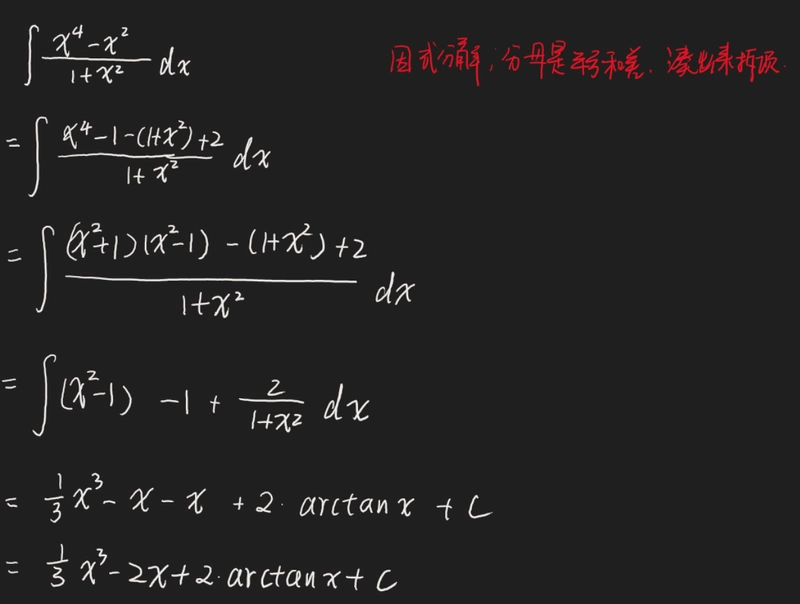 ∫ (x⁴-x²)/(1+x²) dx
因式分解；分母是平方和差，凑出来拆项.
= ∫ (x⁴-1-(1+x²)+2)/(1+x²) dx
= ∫ ((x²+1)(x²-1)-(1+x²)+2)/(1+x²) dx
= ∫ (x²-1) -1 + 2/(1+x²) dx
= 1/3 x³ - x - x + 2·arctanx + C
= 1/3 x³ - 2x + 2·arctanx + C